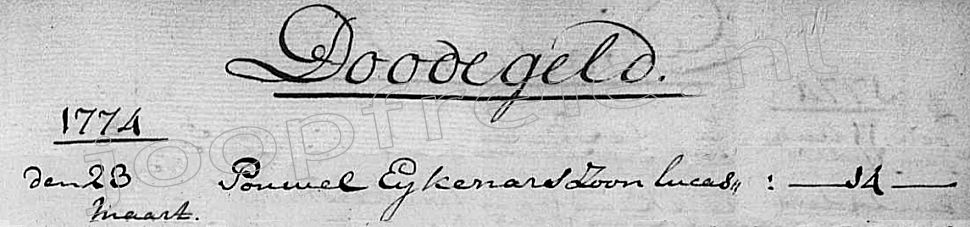 Doodegeld.
1774
den 23 Pouwel Eykenars Zoon lucas,, : — 14 —
maart.
joopfrenk.nl